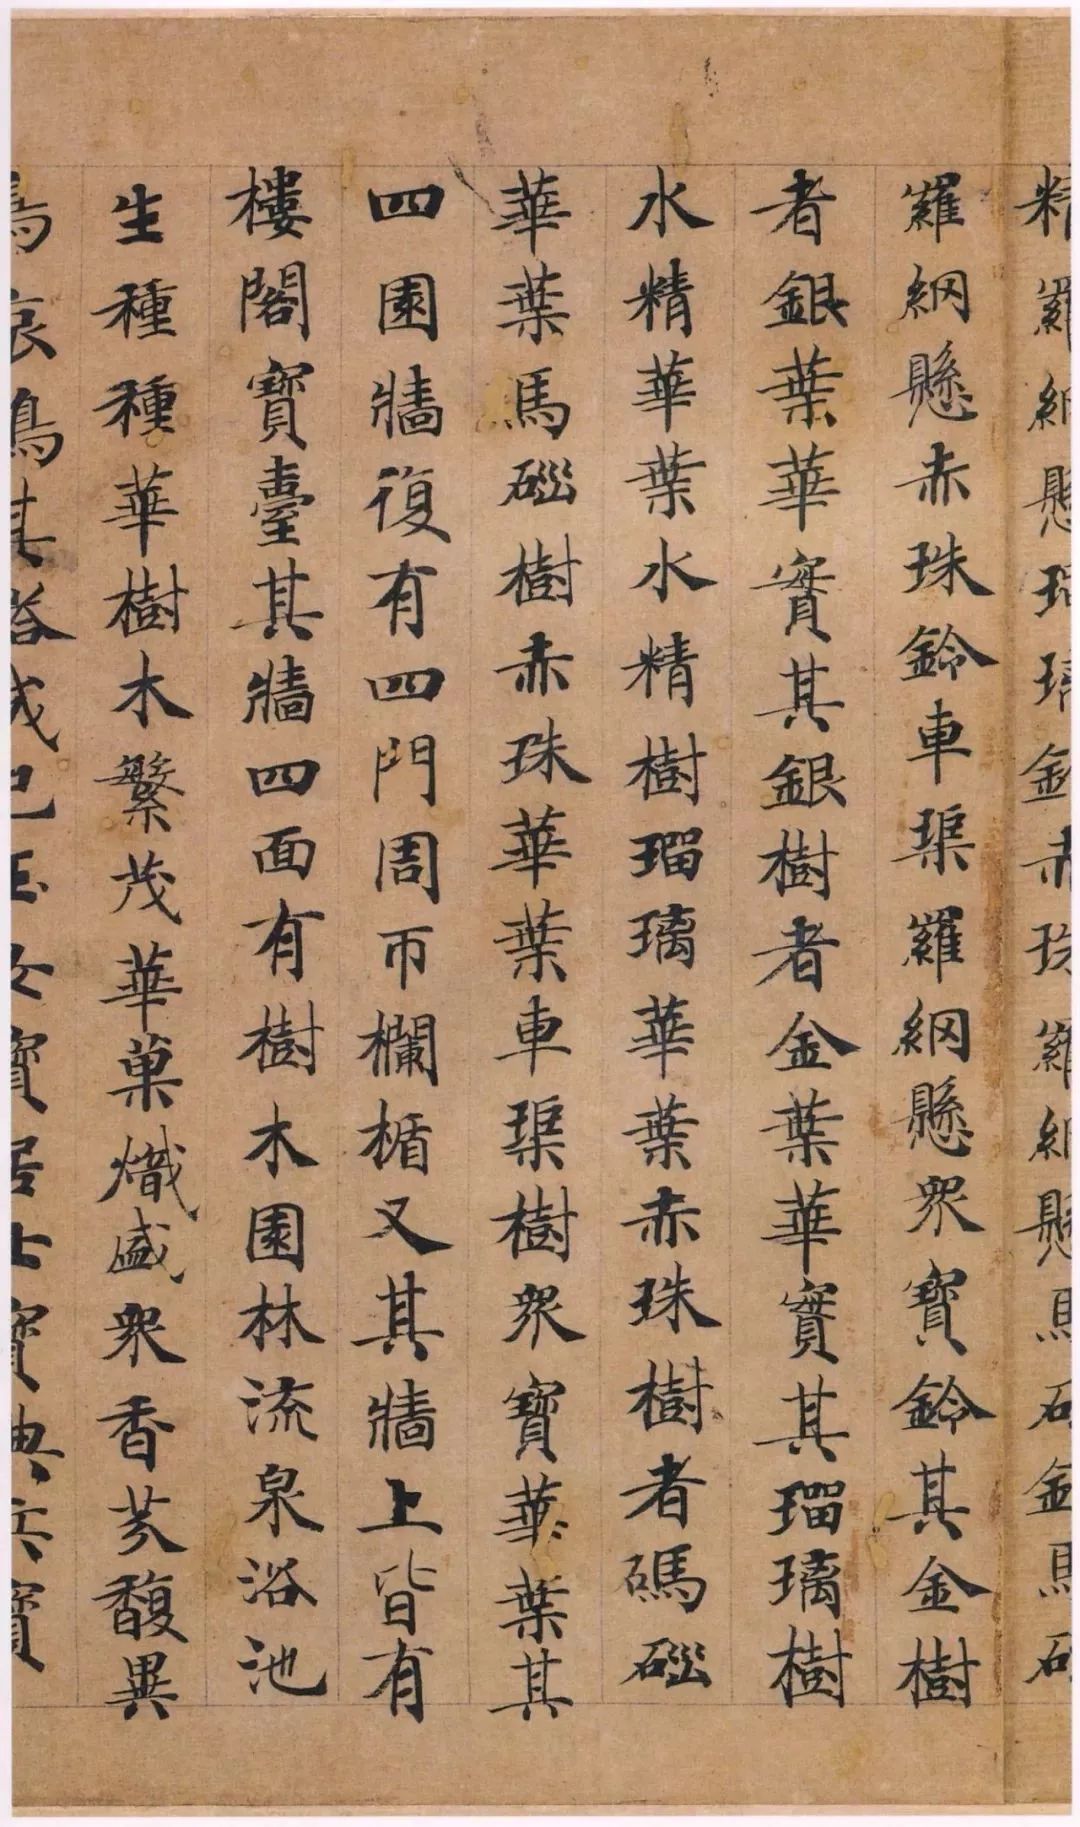 精羅網懸瑠璃鈴赤珠羅網懸馬碯鈴馬碯
羅網懸赤珠鈴車璖羅網懸衆寶鈴其金樹
者銀葉華實其銀樹者金葉華實其瑠璃樹
水精華葉水精樹瑠璃華葉赤珠樹者碼碯
華葉馬碯樹赤珠華葉車璖樹衆寶華葉其
四園牆復有四門周帀欄楯又其牆上皆有
樓閣寶臺其牆四面有樹木園林流泉浴池
生種種華樹木繁茂華菓熾盛衆香芬馥異
鳥哀鳴其塔成已玉女寶居士寶典兵寶